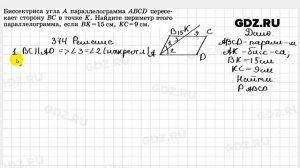 Биссектриса угла A параллелограмма ABCD пересе-
кает сторону BC в точке K. Найдите периметр этого
параллелограмма, если BK=15 см, KC=9 см.
GDZ.RU
374 Решение
1. BC||AD => ∠3=∠2 (накрест л.)
B 15 K 9 C
3
1
2
A D
Дано
ABCD - паралл-м
AK - бисс-са
BK = 15см
KC = 9см
Найти
P ABCD
GDZ.RU